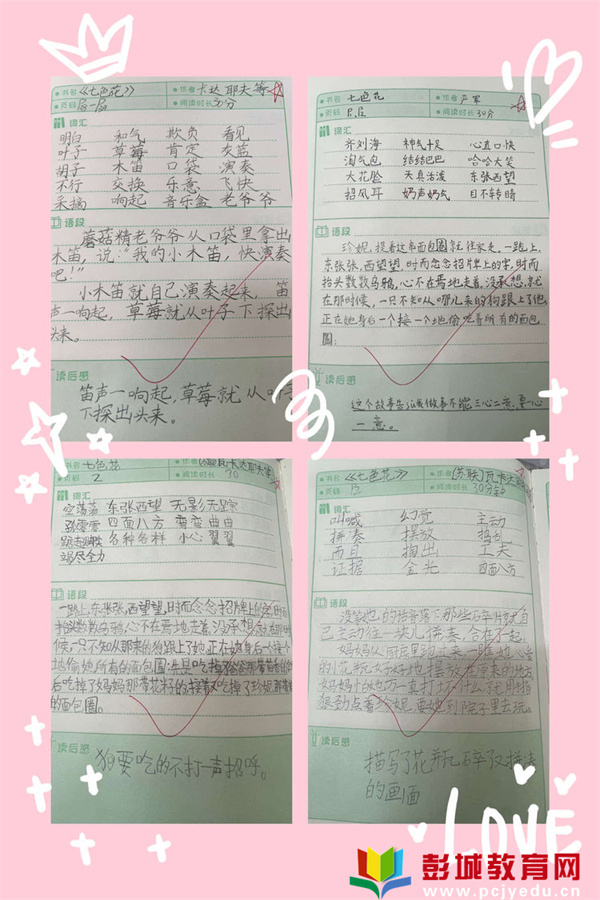 书名《七色花》 作者 卡达耶夫等
页码 阅读时长 30分
词汇
明白 和气 欺负 看见
叶子 草莓 肯定 灰蓝
胡子 木笛 口袋 演奏
不行 交换 乐意 飞快
采摘 响起 音乐盒 老爷爷
语段
蘑菇精老爷爷从口袋里拿出
木笛，说：“我的小木笛，快演奏
吧！”
小木笛就自己演奏起来，笛
声一响起，草莓就从叶子下探出
头来。
读后感
笛声一响起，草莓就从叶子
下探出头来。
书名 七色花 作者
页码 阅读时长 30分
词汇
齐刘海 神气十足 心直口快
淘气包 结结巴巴 哈哈大笑
大花脸 天真活泼 东张西望
招风耳 奶声奶气 目不转睛
语段
珍妮，提着这串面包圈就往家走，一路上，
东张张，西望望，时而念念招牌上的字，时而
抬头数数乌鸦，心不在焉地走着，没承想，就
在那时候，一只不知从哪儿来的狗跟上了他，
正在她身后一个接一个地偷吃着所有的面包
圈；
读后感
这个故事告诉我做事不能三心二意，要一心
一意。
书名 七色花 作者
页码 2 阅读时长 30
词汇
空荡荡 东张西望 无影无踪
孤零零 四面八方 弯弯曲曲
各种各样 小心翼翼
竭尽全力
语段
一路上，东张张，西望望，时而念念招牌上的字，时而
抬头数数乌鸦，心不在焉地走着，没承想，就在那时
候，一只不知从那来的狗跟上了她，正在她身后一个接一个
地偷吃她所有的面包圈：先是吃掉爸爸那带茴香的，然
后吃了妈妈那带花籽的，接着又吃掉了珍妮那带
的面包圈。
读后感
狗要吃的不打一声招呼。
书名《七色花》 作者
页码 12 阅读时长 30分钟
词汇
叫喊 幻觉 主动
拼凑 摆放 捣乱
而且 掏出 工夫
证据 金光 四面八方
语段
没等他的话音落下那些碎片就自
己主动往一块儿拼凑，合在了一起，
妈妈从厨房里跑过来一瞧，她心爱
的小花瓶好好地摆放在原来的地方
妈妈
狠劲点着珍妮，要她到院子里去玩。
读后感
描写了花瓶碎了又拼凑
的画面
LOVE
彭城教育网
www.pcjyedu.cn